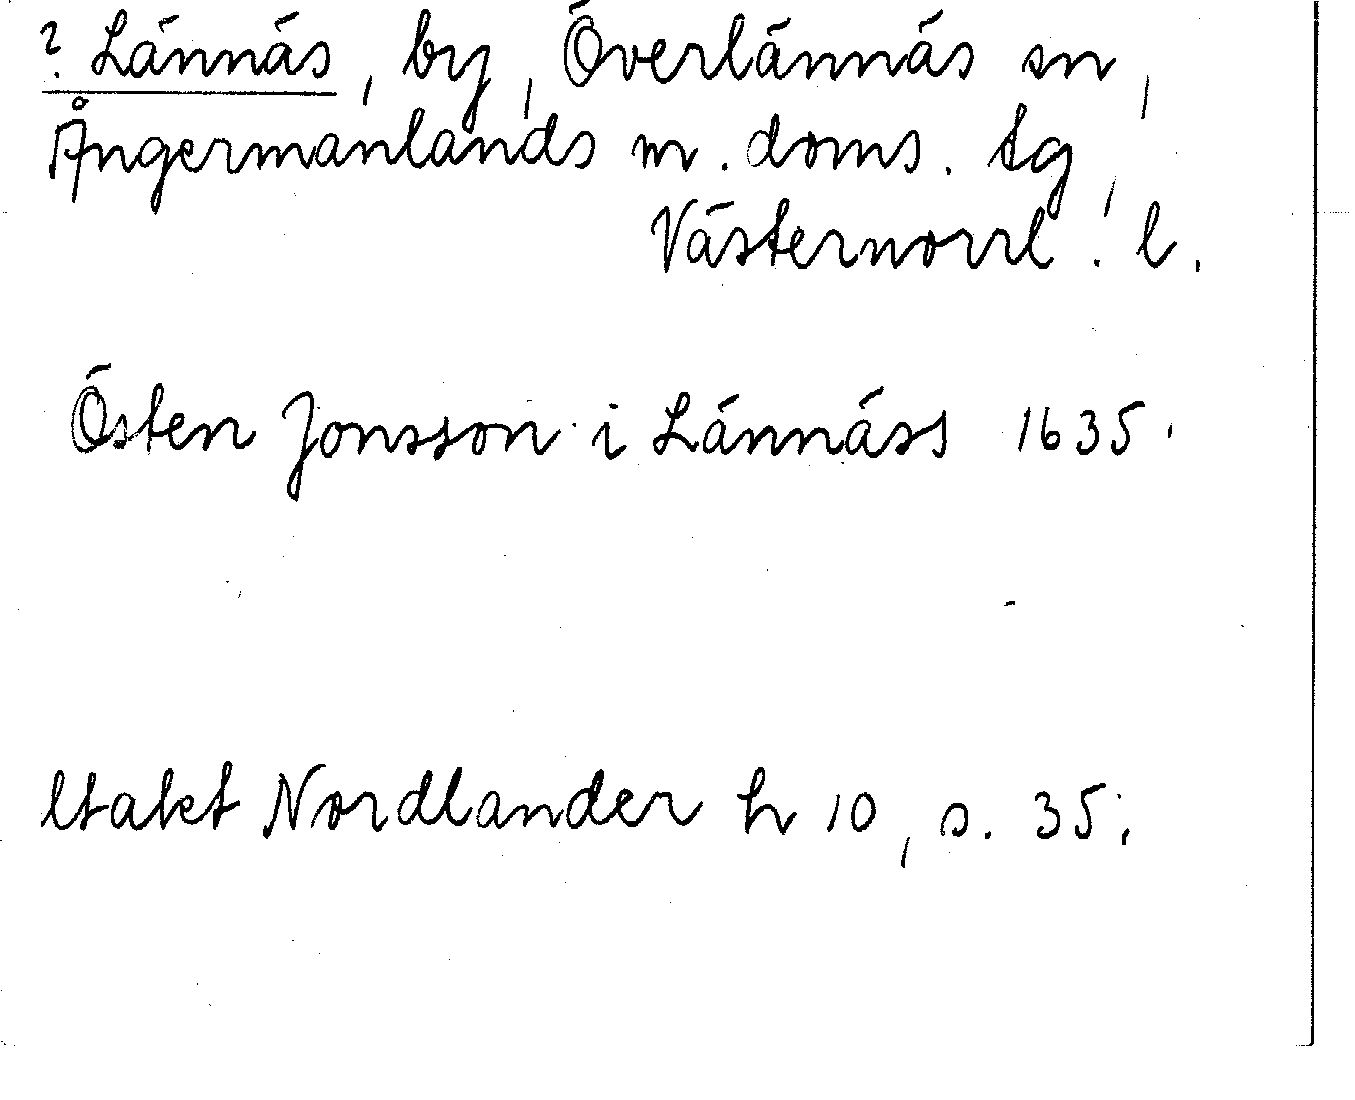 ? Lännäs, by, Överlännäs sn,
Ångermanlands m. doms. tg,
Västernorrl. l.
Östen Jonsson i Lännäss 1635.
ltakt Nordlander h 10, s. 35.